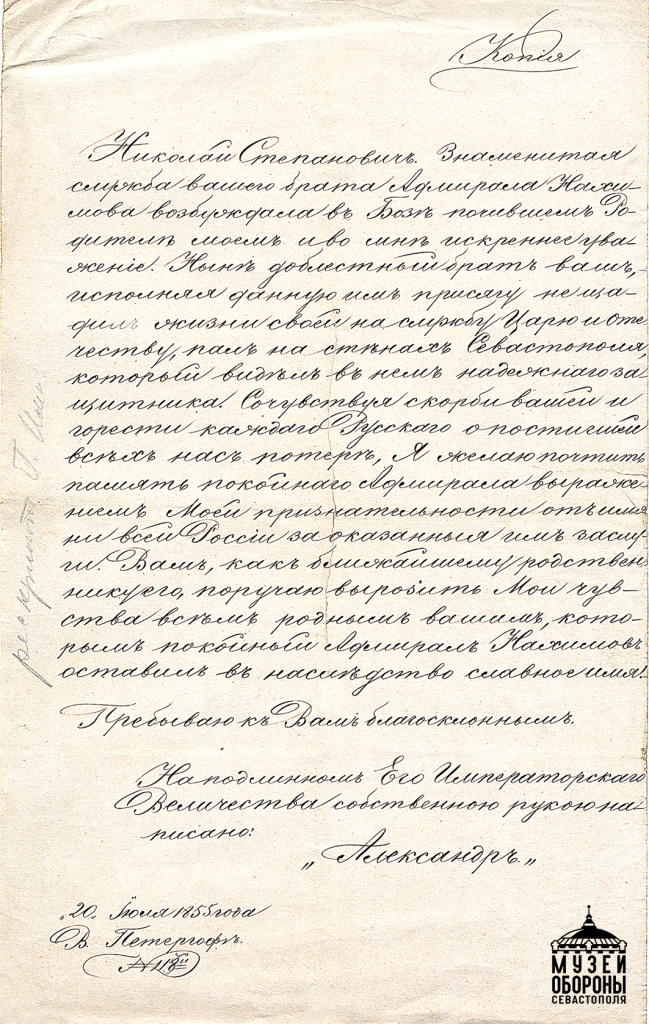 Копія
Николай Степановичъ. Знаменитая
служба вашего брата Адмирала Нахи-
мова возбуждала въ Бозѣ почившемъ Ро-
дителѣ моемъ и во мнѣ искреннее ува-
женіе. Нынѣ доблестный братъ вашъ,
исполняя данную имъ присягу не ща-
дилъ жизни своей на службу Царю и Оте
честву, палъ на стѣнахъ Севастополя,
который видѣлъ въ немъ надежнаго за
щитника! Сочувствуя скорби вашей и
горести каждаго Русскаго о постигшей
всѣхъ насъ потерѣ, Я желаю почтить
память покойнаго Адмирала выраже
ніемъ Моей признательности отъ име
ни всей Россіи за оказанныя имъ заслу
ги. Вамъ, какъ ближайшему родствен
нику его, поручаю выразить Мои чув-
ства всѣмъ роднымъ вашимъ, кото-
рымъ покойный Адмиралъ Нахимовъ
оставилъ въ наслѣдство славное имя!
Пребываю къ Вамъ благосклоннымъ.
На подлинномъ Его Императорскаго
Величества собственною рукою на-
писано:
„Александръ„
„20„ Іюля 1855 года
В. Петергофъ.
рескриптъ
МУЗЕЙ
ОБОРОНЫ
СЕВАСТОПОЛЯ